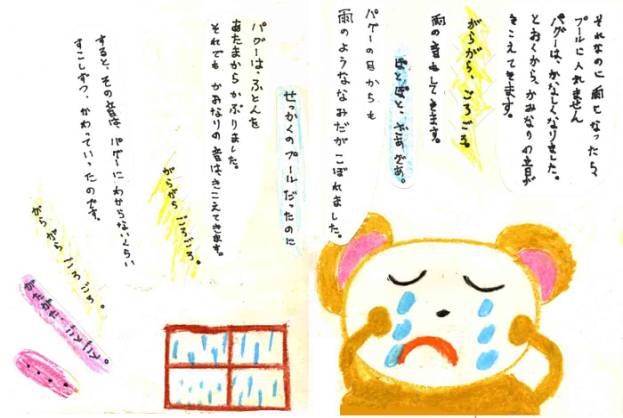 それなのに雨になったら、
プールに入れません
パグーは、かなしくなりました。
とおくから、かみなりの音が
きこえてきます。
がらがら、ごろごろ。
雨の音もしてきます。
ぽとぽと、ざあざあ。
パグーの目からも
雨のようななみだがこぼれました。
せっかくのプールだったのに
パグーは、ふとんを
あたまからかぶりました。
それでもかみなりの音は、きこえてきます。
がらがらごろごろ。
すると、その音は、パグーにわからないくらい
すこしずつ、かわっていったのです。
がらがらごろごろ。
がたがた、ごとごと。